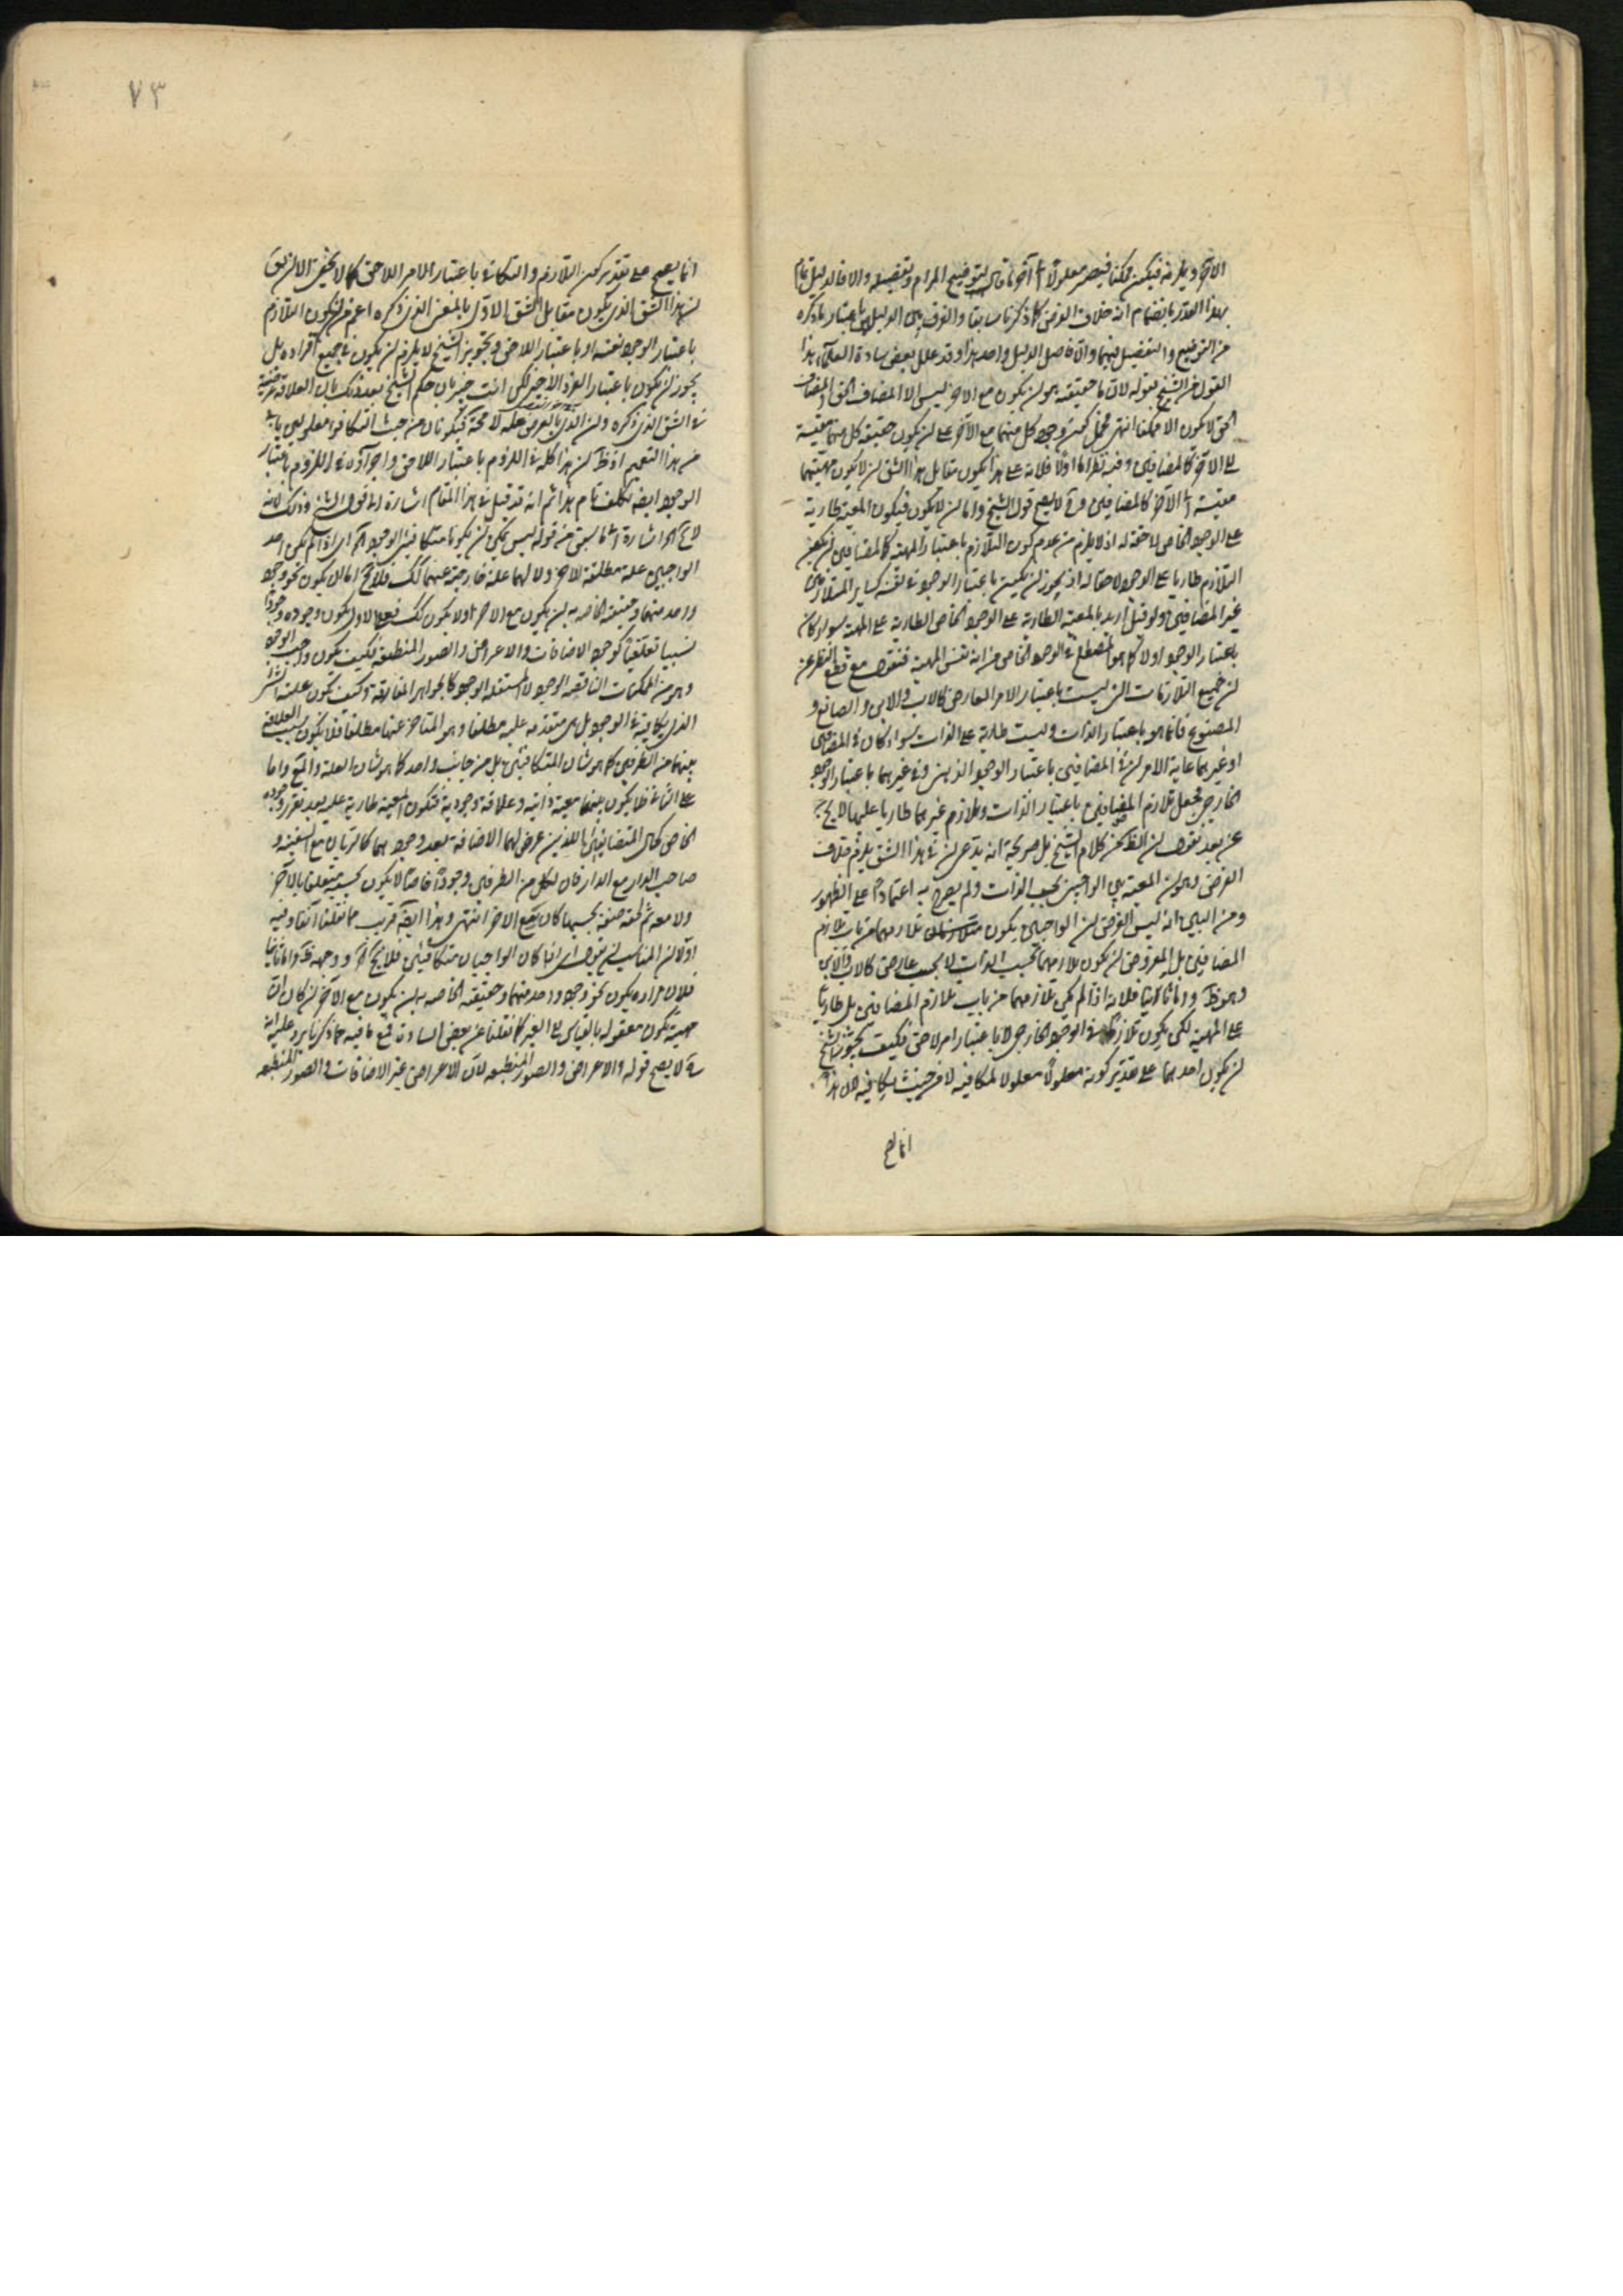 الآخر ويلزمه فيكون ممكنا فيصير معلولا الى آخر ما قال لتوضيح المرام وتفصيله والا فالدليل تمام
بهذا القدر بانضمام انه خلاف الفرض كما ذكرنا سابقا والفرق بين الدليلين باعتبار ما ذكره
من التوضيح والتفصيل بينهما والا فاصل الدليل واحد هذا وقد علل بعض سادة العلماء هذا
القول من الشيخ بقوله لان ما حقيقته هو ان يكون مع الآخر ليس الا المضاف الحق والمضاف
الحق لا يكون الا ممكنا انتهى فحمل كون وجود كل منهما مع الآخر على ان يكون حقيقة كل منهما مقيسة
الى الآخر كالمضافين وفيه نظر اما اولا فلانه على هذا يكون مقابل هذا الشق ان لا يكون مهيتهما
مقيسة الى الآخر كالمضافين وح لا يصح قول الشيخ واما ان لا يكون فيكون المعية طارية
على الوجود الخاص لاحقة له اذ لا يلزم من عدم كون التلازم باعتبار المهية كالمضافين ان يكون
التلازم طاريا على الوجود لاحقا له اذ يجوز ان يكون باعتبار الوجود في نفسه كساير المتلازمين
غير المضافين ولو قيل اريد بالمعية الطارية على الوجود الخاص الطارية على المهية سواء كان
باعتبار الوجود اولا كما هو المصطلح في الوجود الخاص من انه نفس المهية فنقول مع قطع النظر عن
ان جميع التلازمات التي ليست باعتبار الامر العارض كالاب والابن والصانع و
المصنوع فانما هو باعتبار الذات وليست طارية على الذات سواء كان في المضافين
او غيرهما غاية الامر ان في المضافين باعتبار الوجود الذهني وفي غيرهما باعتبار الوجود
الخارجي فجعل تلازم المضافين باعتبار الذات وتلازم غيرهما طاريا عليها لا يخ
عن بعد نقول ان الظ من كلام الشيخ بل صريحه انه يدعي ان في هذا الشق يلزم خلاف
الفرض وهو ان المعية بين الواجبين بحسب الذات ولم يصرح به اعتمادا على الظهور
ومن البين انه ليس الفرض ان الواجبين يكون تلازمهما من باب تلازم
المضافين بل المفروض ان يكون تلازمهما بحسب الذات لا بحسب عارض كالاب والابن
وهو ظ واما ثانيا فلانه اذا لم يكن تلازمهما من باب تلازم المضافين بل طاريا
على المهية لكن يكون تلازما في الوجود الخارجي لا باعتبار امر لاحق فكيف يجوز الشيخ
ان يكون احدهما على تقدير كونه معلولا معلولا لمكافيه لا من حيث يكافيه لان هذا
انما يصح
انما يصح على تقدير كون التلازم والتكافي باعتبار الامر اللاحق كما لا يخفى الا ان يق
ان هذا الشق الذي يكون مقابل الشق الاول بالمعنى الذي ذكره اعم من ان يكون التلازم
باعتبار الوجود نفسه او باعتبار اللاحق وتجويز الشيخ لا يلزم ان يكون في جميع افراده بل
يجوز ان يكون باعتبار الفرد الاخير لكن انت خبير بان حكم الشيخ بعد ذلك بان العلاقة عرضية
في الشق الذي ذكره وان الذي بالعرض علة لاحقة فيكونان من حيث التكافؤ معلولين يابى
من هذا التعميم اذ ظ ان هذا كله في اللزوم باعتبار اللاحق واجراؤه في اللزوم باعتبار
الوجود ايضا تكلف تام هذا ثم انه قد قيل في هذا المقام اشارة الى قول الشيخ وذلك لانه
لا يخ الخ اشارة الى ما سبق من قوله ليس يمكن ان يكونا متكافئي الوجود الخ اي اذا لم يكن احد
الواجبين علة مطلقة للآخر ولا لهما علة خارجة عنهما كك فلا يخ اما ان يكون نحو وجود
واحد منهما وحقيقته الخاصة به ان يكون مع الآخر اولا يكون كك فعلى الاول يكون وجوده وجودا
نسبيا تعلقيا كوجود الاضافات والاعراض والصور المنطبعة فكيف يكون واجب الوجود
وهو من الممكنات الناقصة الوجود لا المستقلة الوجود كالجواهر المفارقة وكيف يكون علته الشئ
الذي يكافيه في الوجود بل هي متقدمة عليه مطلقا وهو المتاخر عنها مطلقا فلا يكون بسبب العلاقة
بينهما من الطرفين كما هو شان المتكافئين بل من جانب واحد كما هو شان العلة والمع واما
على الثاني فلا يكون بينهما معية ذاتية وعلاقة وجودية فيكون المعية طارية عليه بعد تقرر وجوده
الخاص كحال المتضايفين اللذين عرض لهما الاضافة بعد وجودهما كالربان مع السفينة و
صاحب الدار مع الدار فان لكل من الطرفين وجودا خاصا لا يكون بحسبه متعلقا بالآخر
ولا معه ثم لحقه صفة بحسبها كان مع الآخر انتهى وهذا ايضا قريب مما نقلنا آنفا وفيه
اولا ان المناسب ان يقول اي اذا كان الواجبان متكافئين فلا يخ الخ ووجهه ظ واما ثانيا
فلان مراده بكون نحو وجود واحد منهما وحقيقته الخاصة به ان يكون مع الآخر ان كان ان
مهيته يكون معقوله بالقياس الى الغير كما نقلنا عن بعض السادة فمع ما فيه مما ذكرنا يرد عليه انه
ح لا يصح قوله والاعراض والصور المنطبعة لان الاعراض غير الاضافات والصور المنطبعة
٧٣